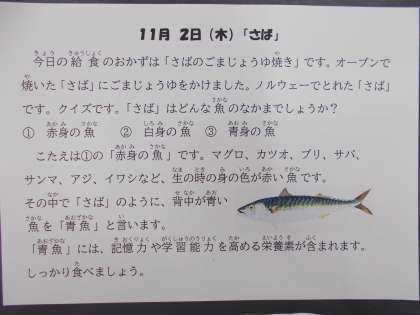 11月 2日(木)「さば」
今日の給食のおかずは「さばのごまじょうゆ焼き」です。オーブンで
焼いた「さば」にごまじょうゆをかけました。ノルウェーでとれた「さば」
です。クイズです。「さば」はどんな魚のなかまでしょうか?
① 赤身の魚 ② 白身の魚 ③ 青身の魚
こたえは①の「赤身の魚」です。マグロ、カツオ、ブリ、サバ、
サンマ、アジ、イワシなど、生の時の身の色が赤い魚です。
その中で「さば」のように、背中が青い
魚を「青魚」と言います。
「青魚」には、記憶力や学習能力を高める栄養素が含まれます。
しっかり食べましょう。